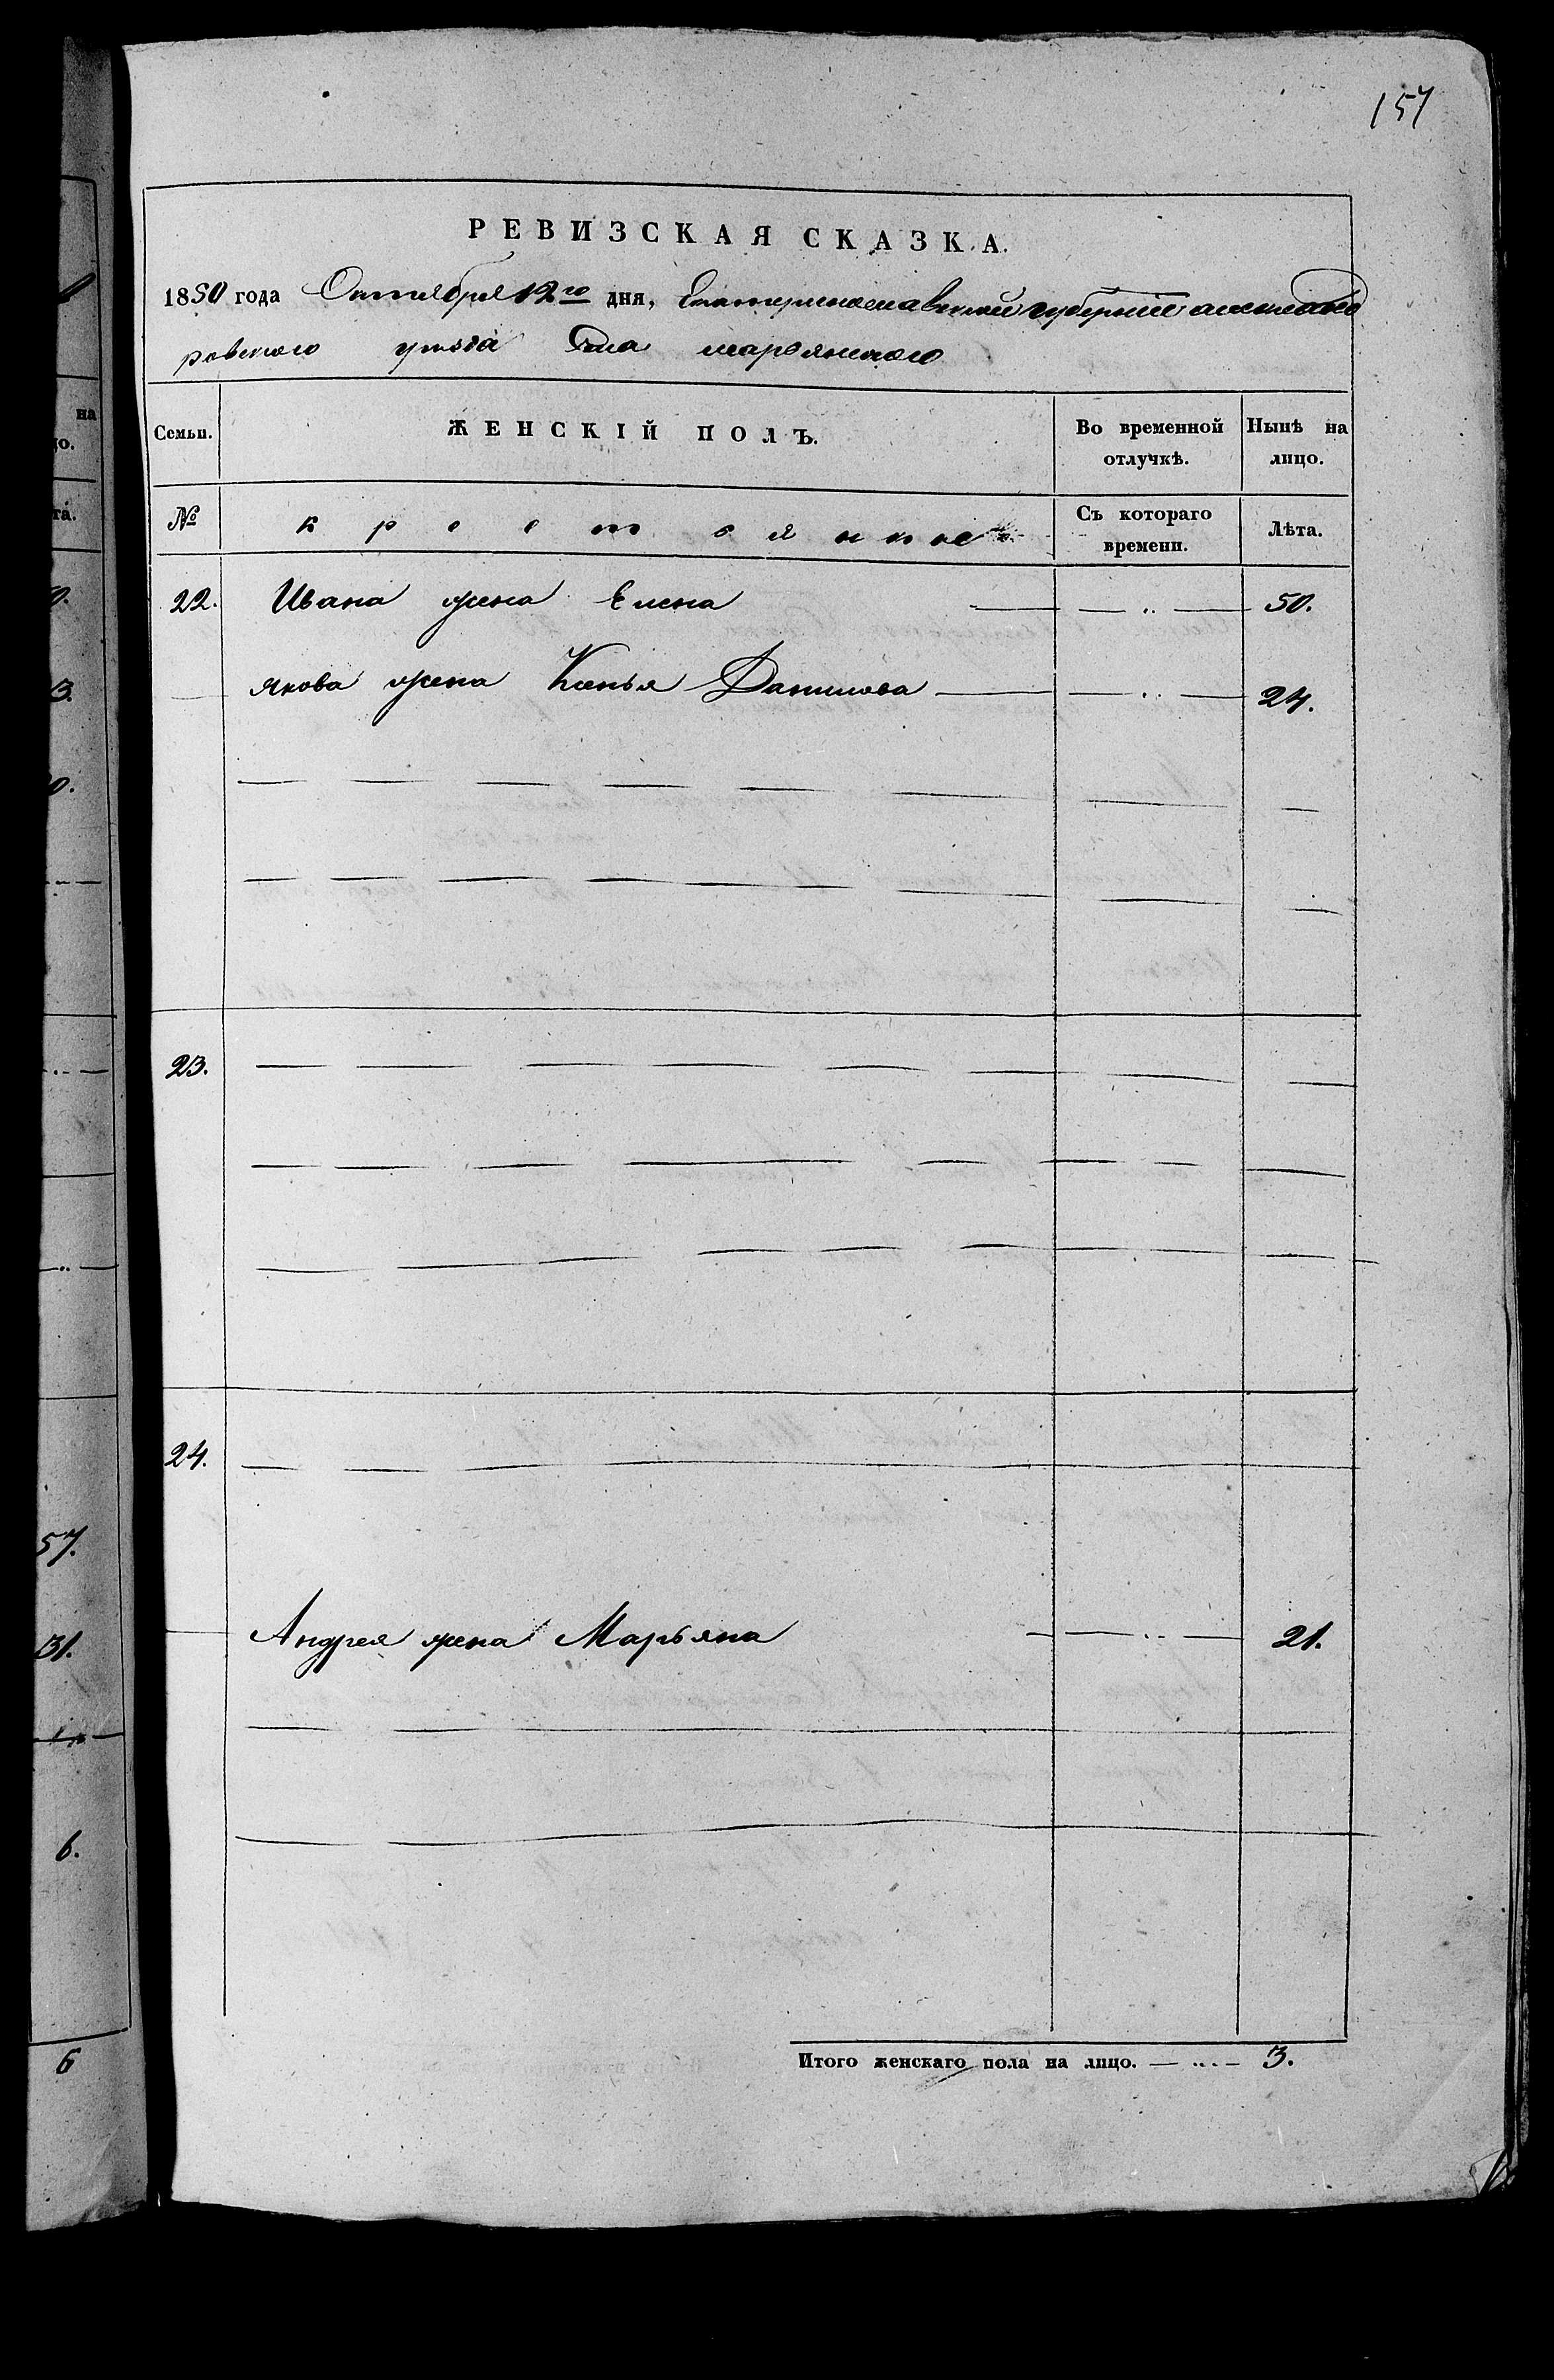 157
РЕВИЗСКАЯ СКАЗКА.
1850 года Октября 12го дня, Екатеринославской губерніи александ
ровского уезда Села марьянского
Семьи. ЖЕНСКІЙ ПОЛЪ. Во временной отлучкѣ. Нынѣ на лицо.
№ Съ котораго времени. Лѣта.
22. Ивана жена Елена — „ — 50.
Якова жена Ксенья Данилова — „ — 24.
23.
24.
Андрея жена Марьяна — „ — 21.
Итого женскаго пола на лицо. — „ — 3.
на
о.
та.
0.
3.
0.
57.
31.
6.
6